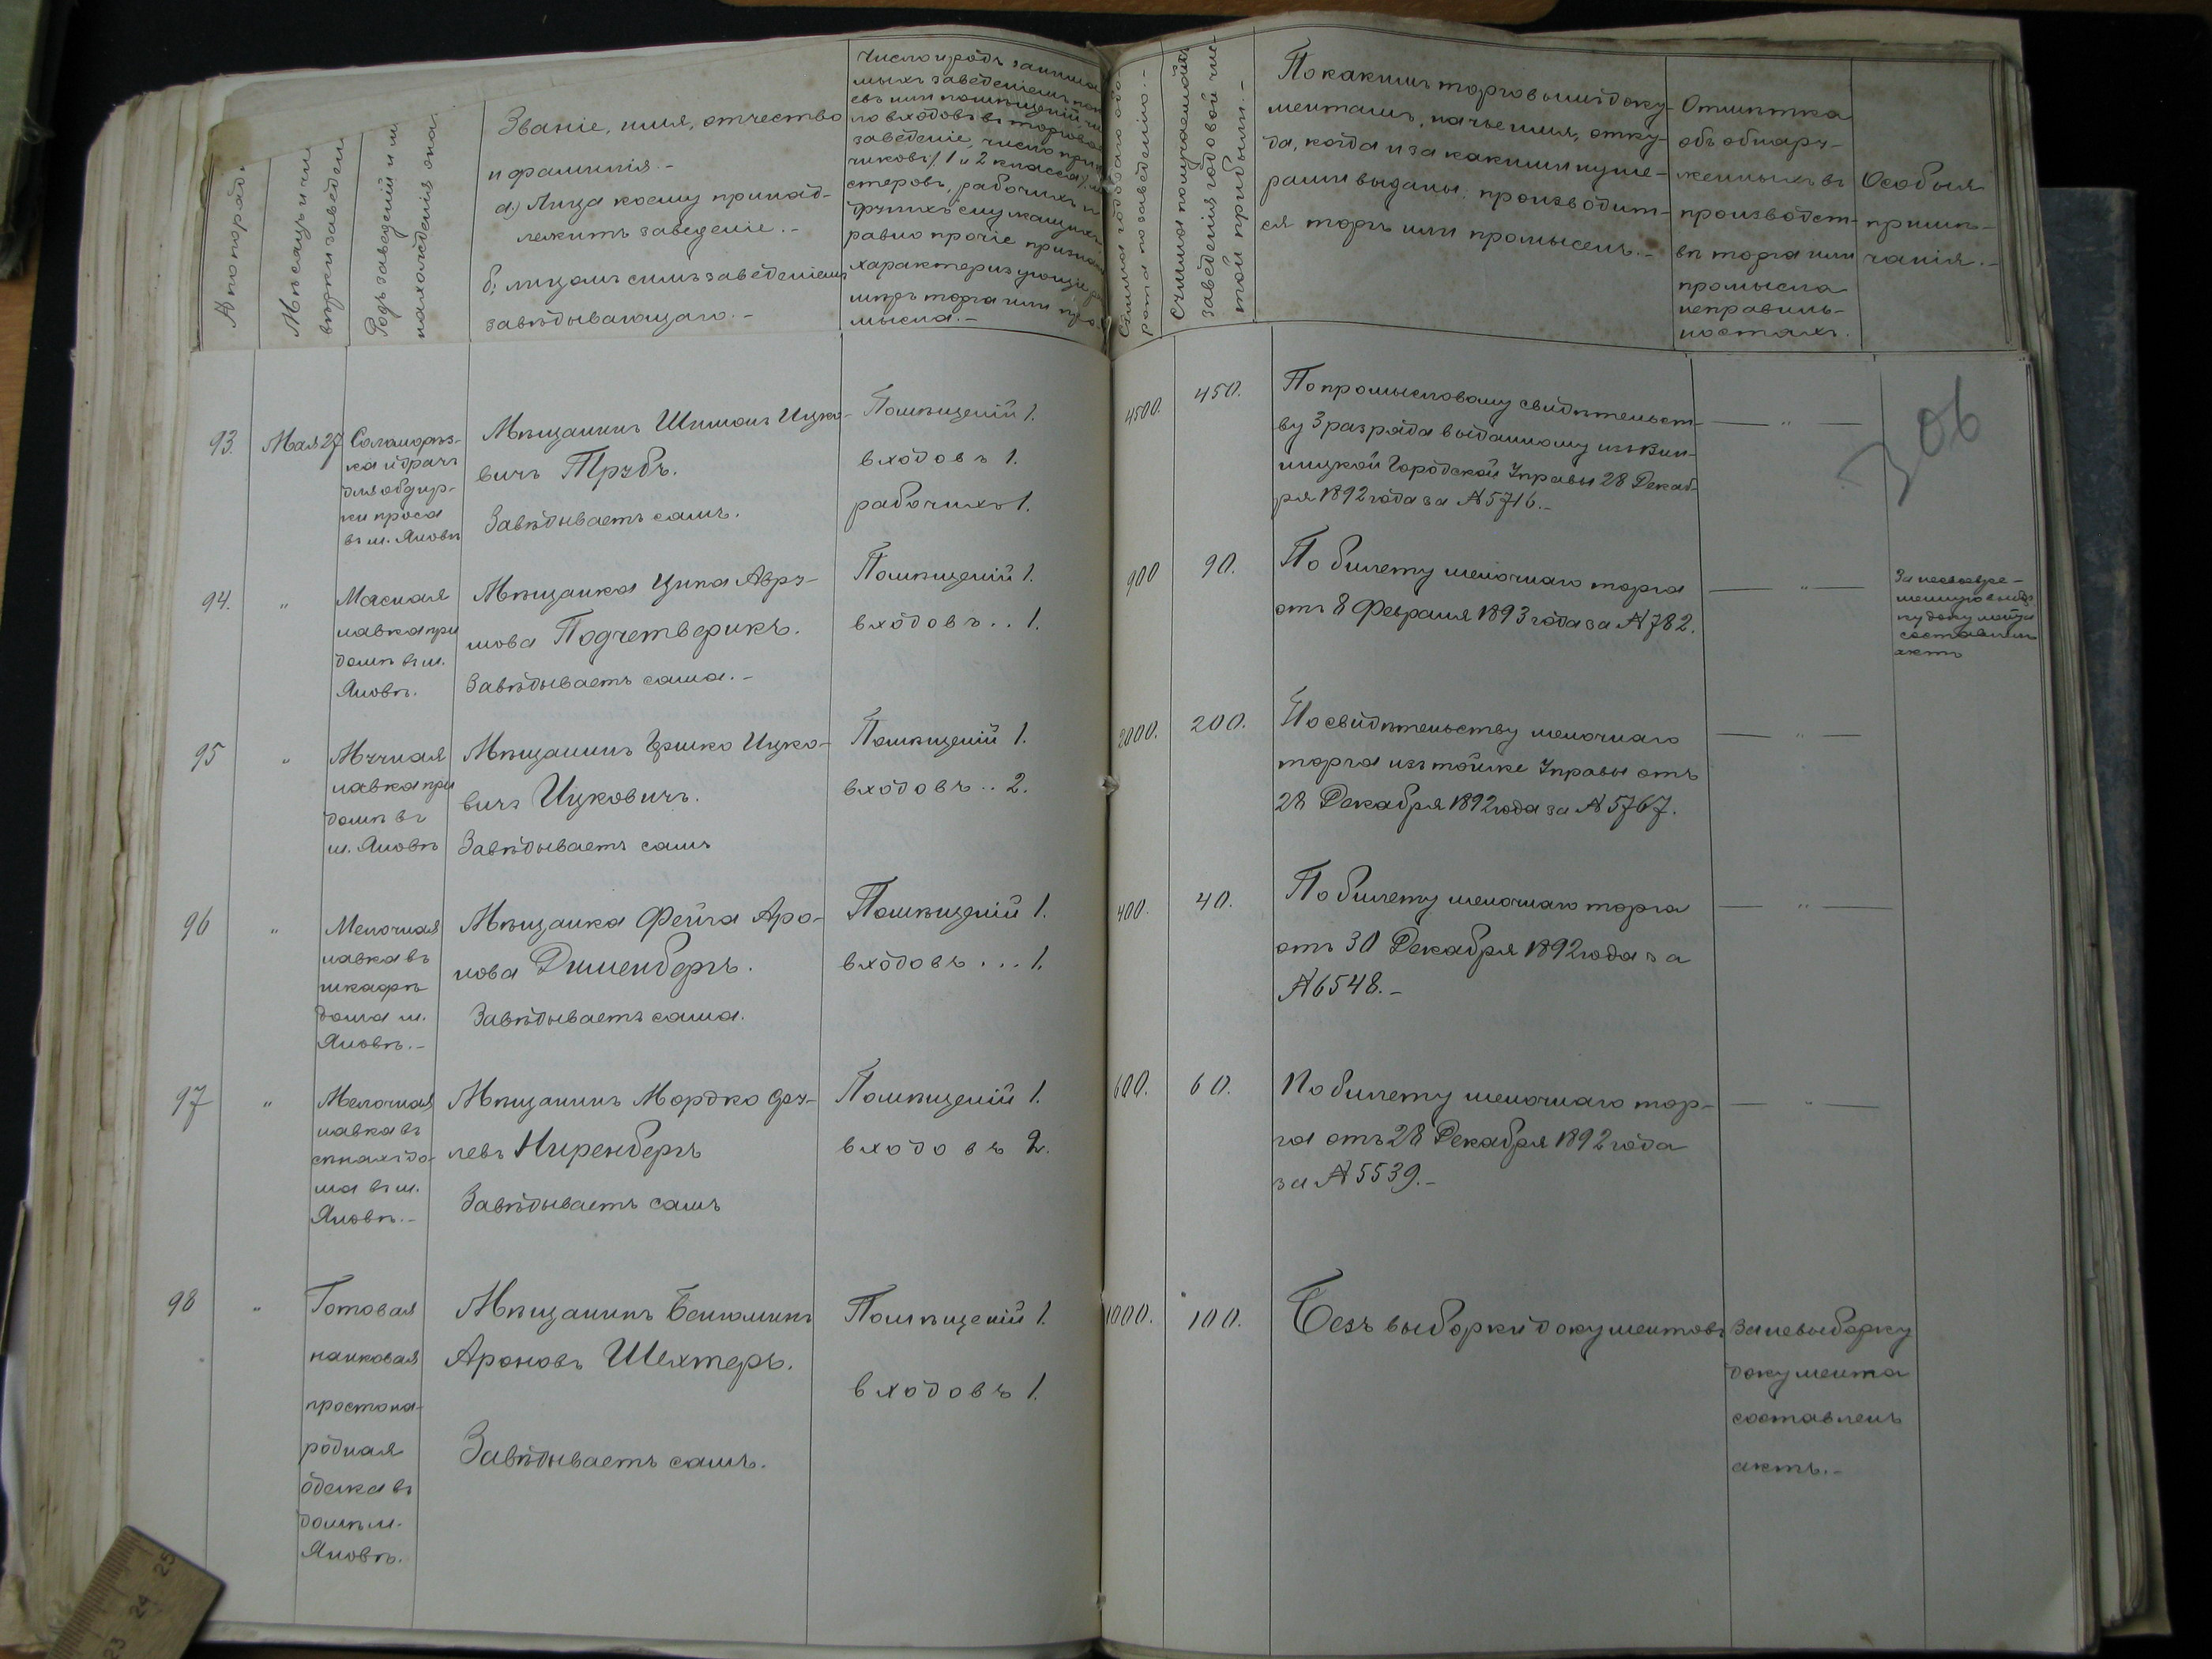 № по поряд.
Мѣсяцъ и чи
вѣрки заведен
Родъ заведенiй и м
нахожденiя она.
Званiе, имя, отчество
и фамилiя. -
а) Лица коему принад-
лежитъ заведенiе. -
б, лицомъ симъ заведенiемъ
завѣдывающаго. -
Число и родъ занима
мыхъ заведенiемъ
евъ или помѣщенiй
ло входовъ въ торгово
заведенiе, число при
чиковъ (1 и 2 класса),
стеровъ, рабочихъ и
другихъ служащихъ
равно прочiе призна
характеризующiе
мѣръ торга или про
мысла. -
Сумма годоваго обо-
рота по заведенiю. -
Сумма получаемой
заведенiя годовой чис-
той прибыли. -
По какимъ торговымъ доку-
ментамъ, на чье имя, отку-
да, когда и за какими нуме-
рами выданы, производит-
ся торгъ или промыселъ. -
Отмѣтка
объ обнару-
женныхъ въ
производст-
вѣ торга или
промысла
неправиль-
ностахъ.
Особыя
примѣ-
чанiя. -
306
93. Мая 27
Соломорѣз-
ка и драчъ
для обдир-
ки проса
въ м. Яновѣ
Мѣщанинъ Шимонъ Ицко-
вичъ Трубъ.
Завѣдываетъ самъ.
Помѣщенiй 1.
входовъ 1.
рабочихъ 1.
4500. 450.
По промысловому свидѣтельст-
ву 3 разряда выданному изъ Вин-
ницкой Городской Управы 28 Декаб-
ря 1892 года за № 5716. -
— " —
94. "
Мясная
лавка при
домѣ въ м.
Яновѣ.
Мѣщанка Ципа Авру-
мова Подчетверикъ.
Завѣдываетъ сама. -
Помѣщенiй 1.
входовъ . . 1.
900 90.
По билету мелочнаго торга
отъ 8 Февраля 1893 года за № 782.
— " —
За несвовре-
менную
ку документа
составленъ
актъ
95 "
Мучная
лавка при
домѣ въ
м. Яновѣ
Мѣщанинъ Гершко Ицко-
вичъ Ицковичъ.
Завѣдываетъ самъ
Помѣщенiй 1.
входовъ . . 2.
2000. 200.
По свидѣтельству мелочнаго
торга изъ той же Управы отъ
28 Декабря 1892 года за № 5767.
— " —
96 "
Мелочная
лавка въ
шкафѣ
дома м.
Яновѣ. -
Мѣщанка Фейга Аро-
нова Дименбергъ.
Завѣдываетъ сама.
Помѣщенiй 1.
входовъ . . . 1.
400. 40.
По билету мелочнаго торга
отъ 30 Декабря 1892 года за
№ 6548. -
— " —
97 "
Мелочная
лавка въ
сѣнахъ до-
ма въ м.
Яновѣ. -
Мѣщанинъ Мордко Сру-
левъ Ниренбергъ
Завѣдываетъ самъ
Помѣщенiй 1.
входовъ 2.
600. 60.
По билету мелочнаго тор-
га отъ 28 Декабря 1892 года
за № 5539. -
— " —
98 "
Готовая
нанковая
простона-
родная
одежа въ
домѣ м.
Яновѣ.
Мѣщанинъ Бенюминъ
Ароновъ Шехтеръ.
Завѣдываетъ самъ.
Помѣщенiй 1.
входовъ 1.
1000. 100.
Безъ выборки документовъ
За невыборку
документа
составленъ
актъ. -
23 24 25